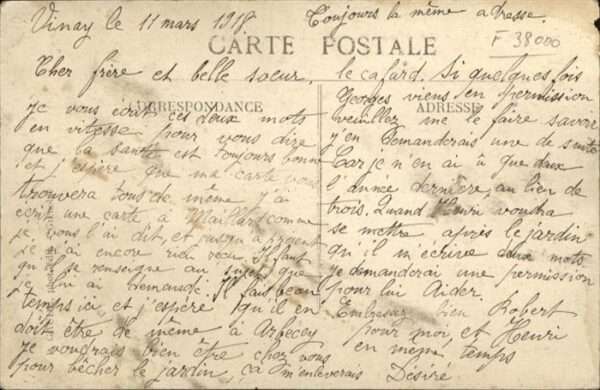 Vinay le 11 mars 1918. Toujours la même adresse.
F 38000
CARTE POSTALE
CORRESPONDANCE
ADRESSE
Cher frère et belle sœur,
je vous écrit ces deux mots
en vitesse pour vous dire
que la santé est toujours bonne
et j'espère que ma carte vous
trouvera tous de même j'ai
écrit une carte à Maillard comme
je vous l'ai dit, et jusqu'à présent
je n'ai encore rien reçu. Il faut
qu'il se renseigne au sujet que
je lui ai demandé. Il fait beau
temps ici et j'espère qu'il en
doit être de même à Arpecey
je voudrais bien être chez vous
pour bêcher le jardin, ça m'enleverais
le cafard. Si quelques fois
Georges viens en permission
veuillez me le faire savoir
j'en demanderais une de suite
Car je n'en ai û que deux
l'année dernière, au lien de
trois. Quand Henri voudra
se mettre après le jardin
qu'il m'écrive deux mots
je demanderai une permission
pour lui Aider.
Embrasser bien Robert
pour moi, et Henri
en meme temps
Désiré